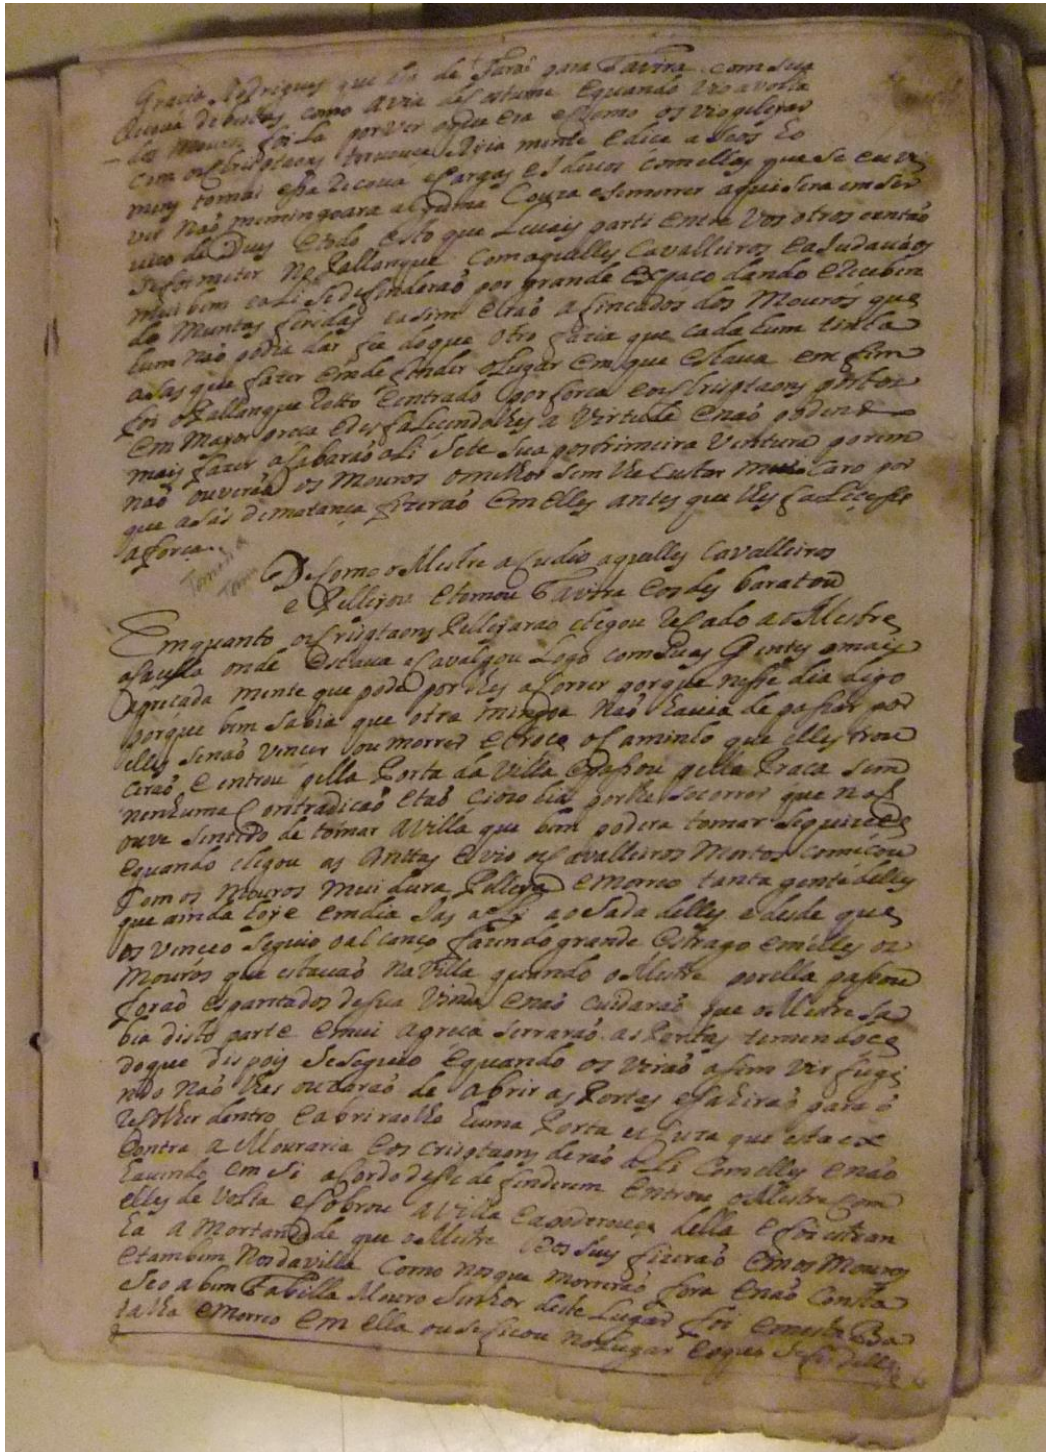 Gracia Rodrigues que hia de Farão para Tavira com sua
Recova de bestas como avia de costume Equando Vio avolta
dos Mouros foi La por ver oque era e Como os Vio pelleijar
Com os Cristaons mente e dice a seos ho
mens tomai esta Recova e Cargas com elles que se eu vi
ver não me mingoara alguma Couza e se morrer aqui sera em ser
viço de Deus Etodo esto que Levais parti entre Vos otros então
se foi meter No Pallanque Com aquelles Cavalleiros Eajudavaos
mui bem e ali se defenderaõ por grande Espaço dando E receben
do Muntas feridas easim Eraõ afincados dos Mouros que
hum não podia dar fee do que Otro fazia que cada hum tinha
asas que fazer Em defender o Lugar Em que Estava em fim
foi o Pallanque Rotto E entrado por força eos Cristaons postos
Em Mayor preça e desfaLeçendo lhes a Virtude Enaõ podendo
mais fazer acabaraõ aLi Sete sua postrimeira Ventura porem
naõ ouveraõ os Mouros o melhor sem lhe Custar Mui Caro por
que asás de matança fizeraõ Em Elles antes que lhes faLeçesse
a força.
De Como o Mestre acudio aquelles Cavalleiros
e Pelleijou Etomou Tavira
Emquanto os Cristaons Pelleijaraõ chegou Recado ao Mestre
onde Estava e Cavalgou Logo com suas Gentes omais
agreçada mente que pode por lhes acorrer porque nesse dia digo
porque bem sabia que otra mingoa Naõ havia de pasar por
elles senaõ Vencer ou morrer o Caminho que elles trou
ceraõ E entrou pella Porta da Villa Epasou pella Praça sem
nenhuma Contradicaõ Etaõ por lhe socorrer que naõ
ouve sentido de tomar a Villa que bem podera tomar se quizera
Equando chegou as Antas Evio os Cavalleiros Mortos Comecou
Com os Mouros mui dura Pelleija Emorreo tanta gente delles
que ainda hoje Em dia a oSada delles e desde que
os Venceo Seguio oalcanço fazendo grande Estrago Em elles os
Mouros que estavaõ Na Villa quando o Mestre por ella pasou
foraõ espantados de sua Vinda Enaõ Cuidaraõ que o Mestre sa
bia disto parte Emui agreça serraraõ as Portas temendose
do que despois se seguio Equando os Viraõ asim Vir fugi
ndo Naõ lhes ouzaraõ de Abrir as Portas para o
Recolher dentro E abriraõ lhe huma Porta esCuza que esta
Contra a Mouraria Eos Cristaons deraõ aLi Com elles Enaõ
havendo Em si acordo de se defenderem Entrou o Mestre Com
elles de Volta e Cobrou a Villa E apoderouçe della E foi estran
ha a Mortandade que o Mestre Eos seus fizeraõ Em os Mouros
Etambem Nos da Villa Como nos que morreraõ fora Enaõ Consta
Se o abim Fabilla Mouro Senhor deste Lugar foi Em esta Ba
talha Emorreo Em ella ou se ficou No Lugar